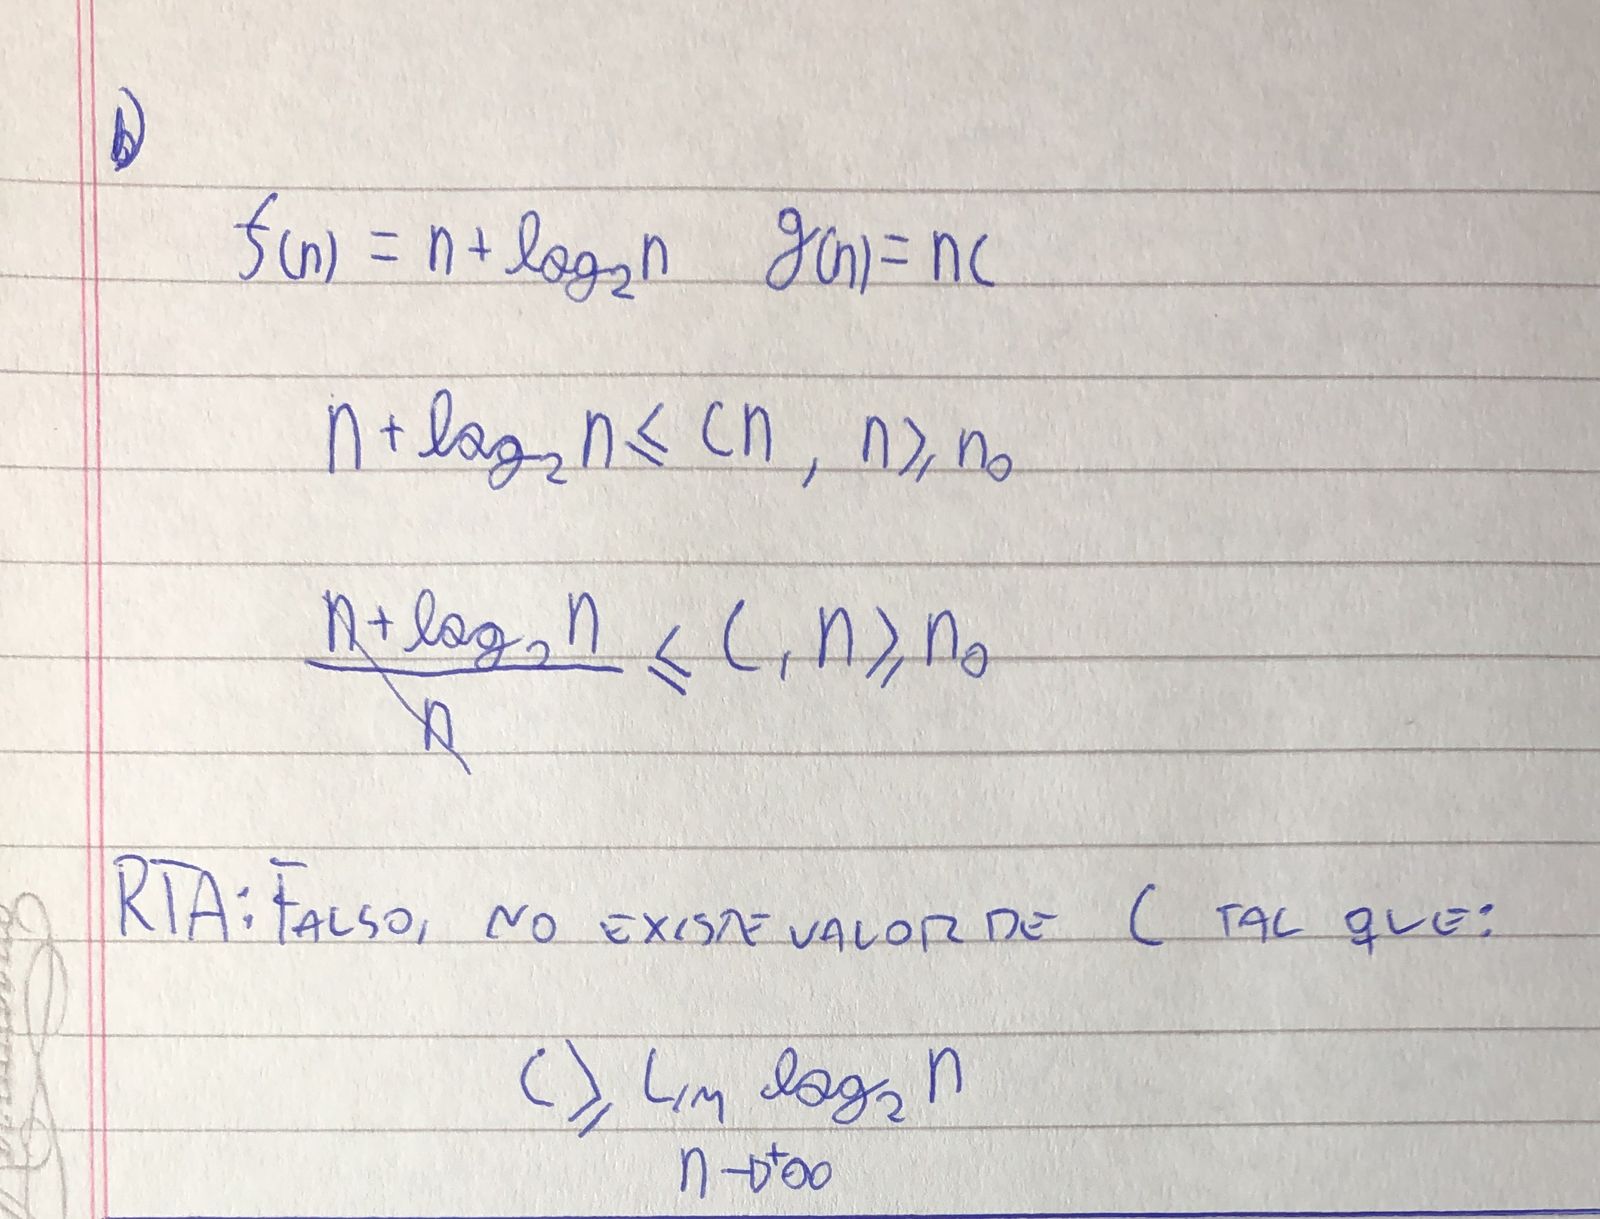 b)
f(n) = n + log₂n g(n) = nc
n + log₂ n ≤ Cn, n ≥ n₀
n + log₂ n
n
≤ C, n ≥ n₀
RTA: FALSO, NO EXISTE VALOR DE C TAL QUE:
C ≥ Lim log₂ n
n→+∞